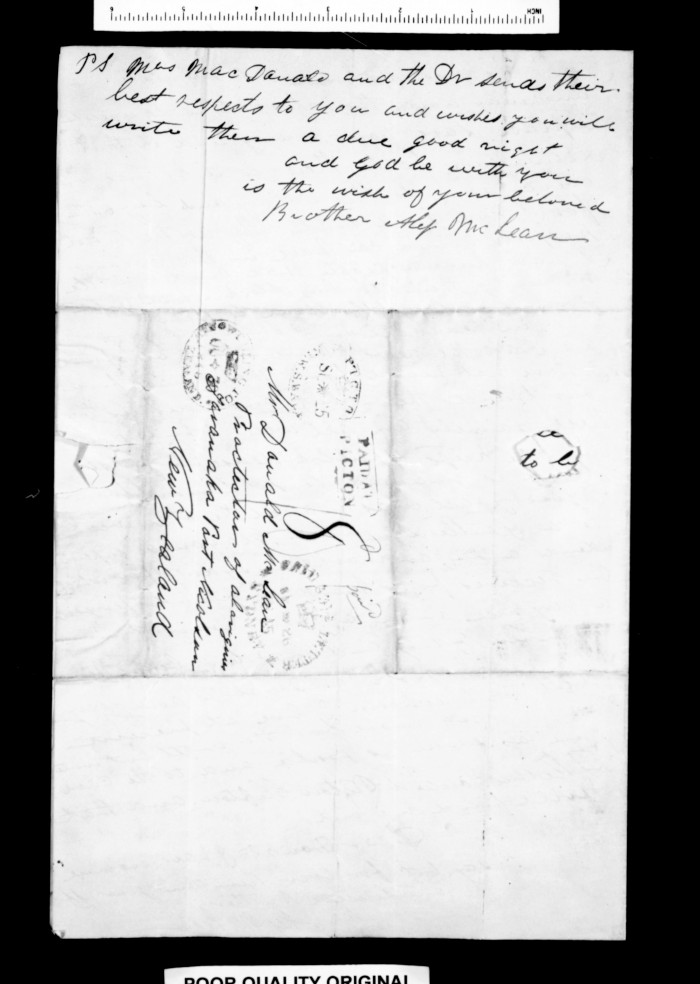 PS Mrs MacDonald and the Dr sends their
best respects to you and wishes you will
write them a due good night
and God be with you
is the wish of your beloved
Brother Alex McLean
PAID AT
PICTON
8
Mr Donald McLean
Protector of aborigines
Taranaka Port Nicolson
New Zealand
SYDNEY
to by
INCH
POOR QUALITY ORIGINAL